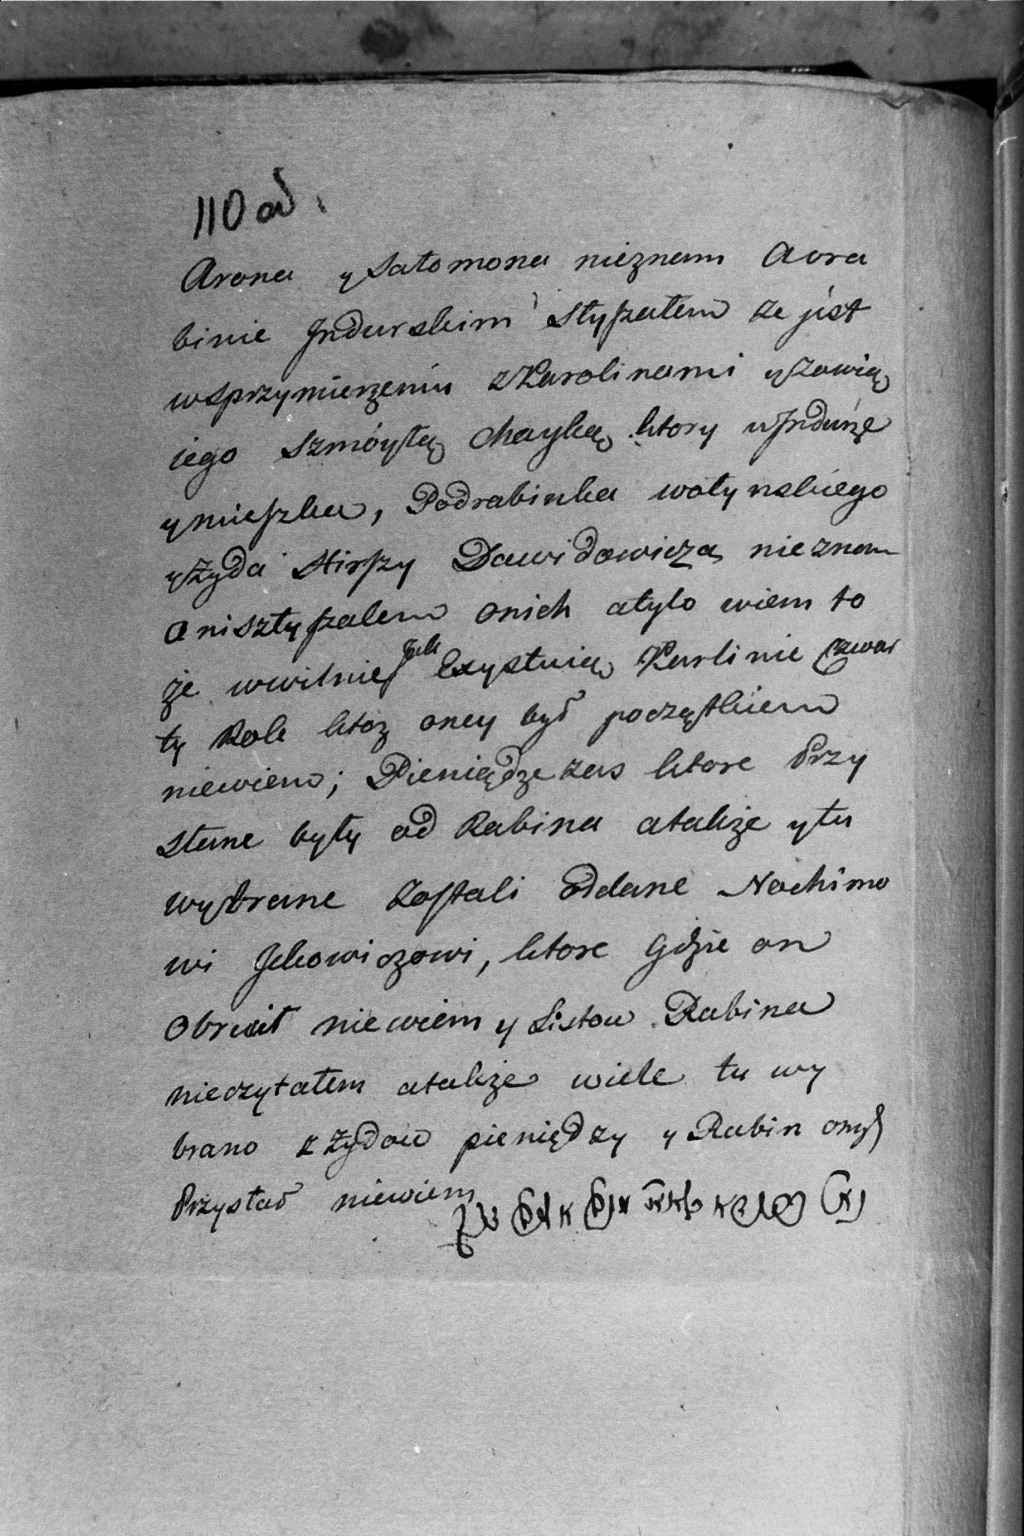 110 od.
Arona y Sałomona nieznam a o ra
binie Jndurskim słyszałem ze jest
w sprzymierzeniu z Karolinami y zowią
iego Szmóyłą Chayką ktory w Jndurze
y mieszka, Podrabinka wołynskiego
y Żyda Hirszy Dawidowicza nieznam
ani szłyszalem o nich a tylo wiem to
że w wilnie jak Exystuią Karlinie czwar
ty Rok ktoz oney był początkiem
niewiem; Pieniądze zas ktore Przy
słane były od Rabina a także y tu
wybrane zostali oddane Nochimo
wi Jckowiczowi, ktore gdzie on
obrucił niewiem y Listow Rabina
nieczytałem a także wiele tu wy
brano z Żydow pieniędzy y Rabin
Przysłał niewiem